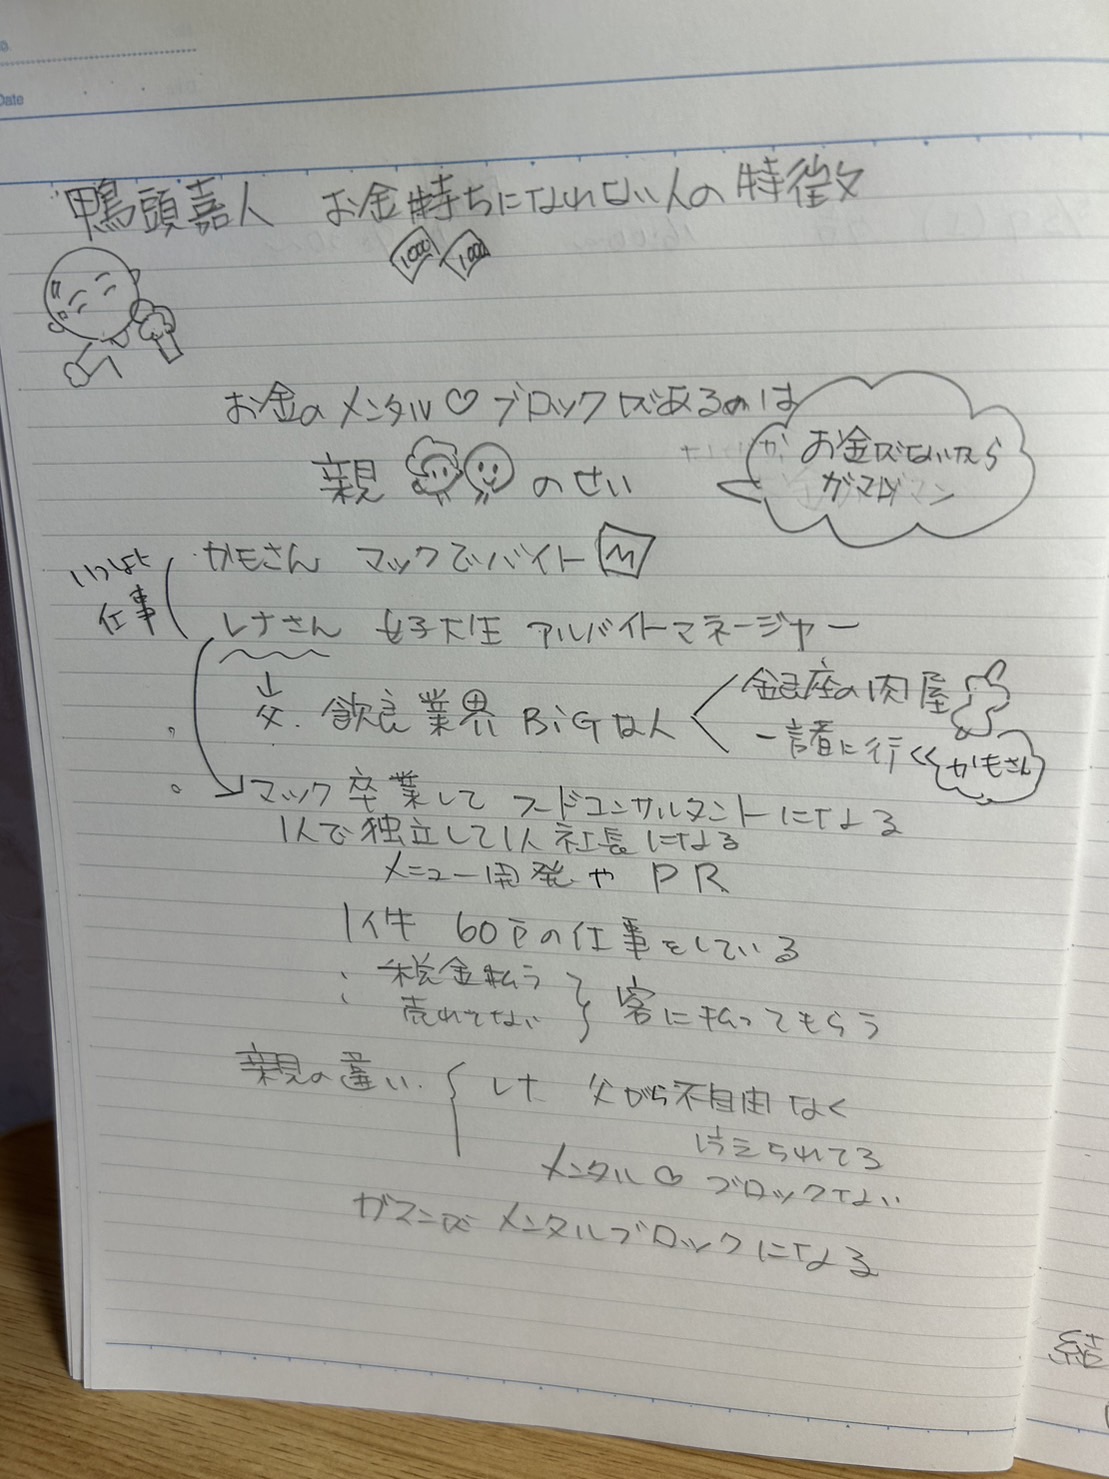 Date
鴨頭嘉人 お金持ちになれない人の特徴
1000 1000
お金のメンタル♡ブロックがあるのは
親 のせい
お金がないから
ガマン
かもさん マックでバイト M
いっしょに
仕事
レナさん 女子大生 アルバイトマネージャー
↓
父. 飲食業界 BiGな人
銀座の肉屋
一諸に行く
かもさん
マック卒業して フードコンサルタントになる
1人で独立して1人社長になる
メニュー開発や PR
1件 60万の仕事をしている
税金払う
売れてない
客に払ってもらう
親の違い.
レナ 父から不自由なく
与えられてる
メンタル♡ ブロックない
ガマンが メンタルブロックになる
結